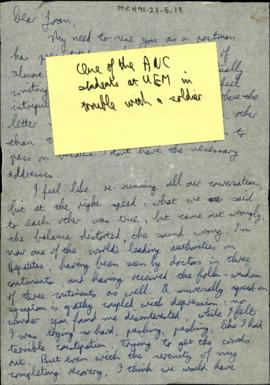 MCH91-27-5-18
Dear Joan,
My need to use you as a postman
has
of
almost
writing
intrigue
the
letter
other
than
to
pass on because I don't have the necessary
addresses.
One of the ANC
students at UEM in
trouble with a soldier
I feel like re-running all our conversations,
but at the right speed: what we said
to each other was true, but came out wrongly,
the balance distorted, the sound wrong. I'm
now one of the world's leading authorities on
hepatitis, having been seen by doctors in three
continents and having received the folk-wisdom
of three continents as well. A universally agreed-on
symptom is coupled with depression: no
wonder you found me disorientated, while I felt
I was trying so hard, pushing, pushing, like I had
terrible constipation, trying to get the words
out. But even with the serenity of my
completing recovery, I think we would have